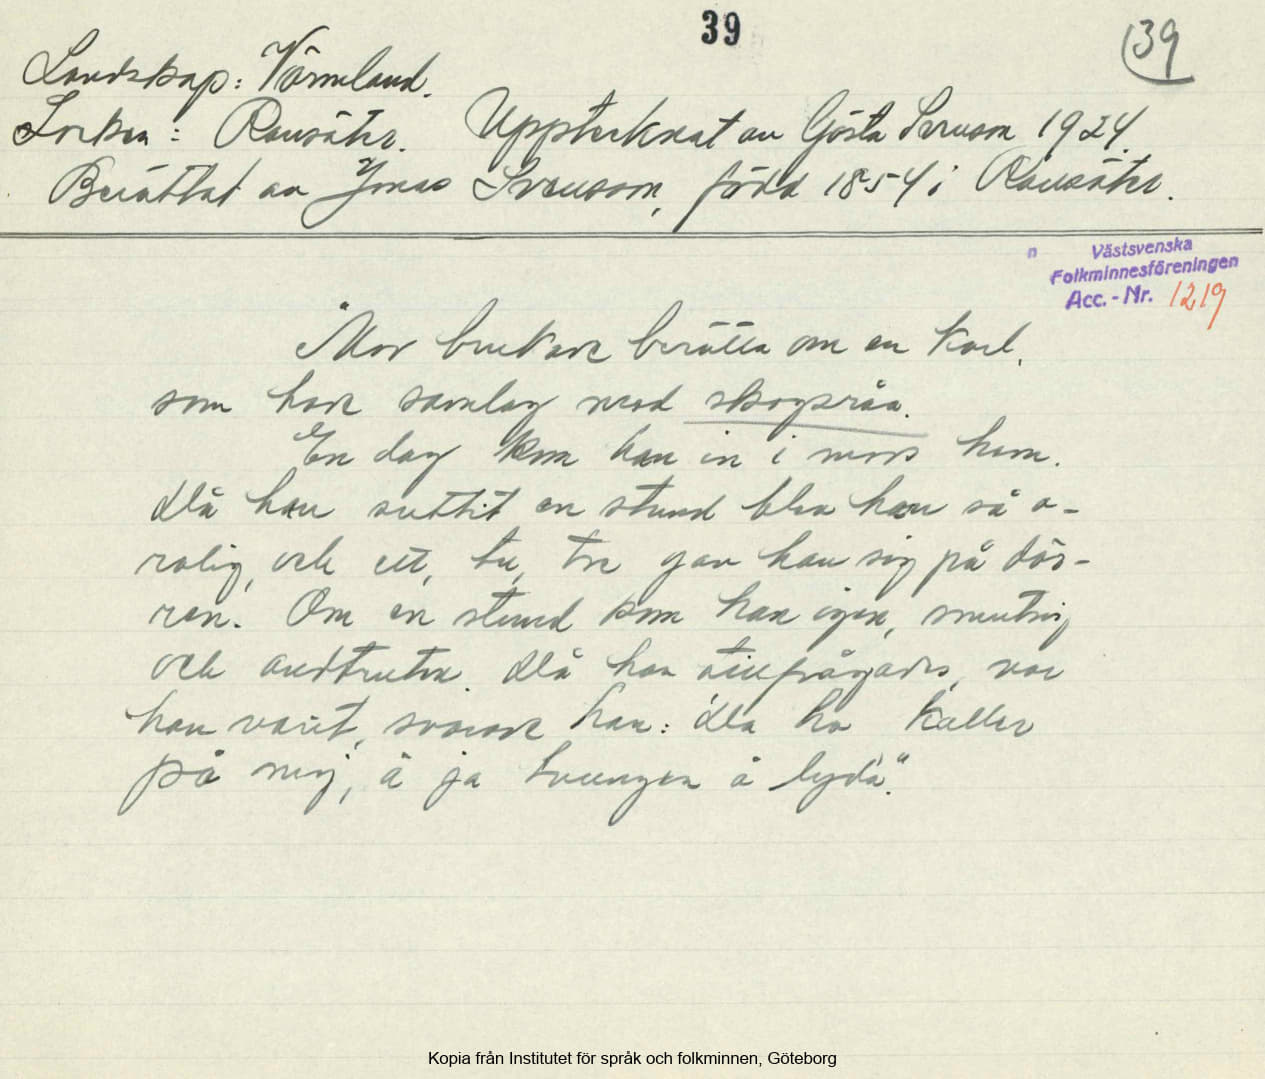 39
39
Landskap: Värmland.
Socken: Ransäter. Upptecknat av Gösta Svenson 1924.
Berättat av Jonas Svenson, född 1854 i Ransäter.
Västsvenska
Folkminnesföreningen
Acc.-Nr. 1219
"Mor brukade berätta om en karl,
som hade samlag med skogsråa.
En dag kom han in i mors hem.
Då han suttit en stund blev han så o-
rolig, och ett, tu, tre gav han sig på dör-
ren. Om en stund kom han igen, smutsig
och andtruten. Då han tillfrågades, var
han varit, svarade han: 'Da ho kaller
på mej, ä ja tvungen å lyda'."
Kopia från Institutet för språk och folkminnen, Göteborg